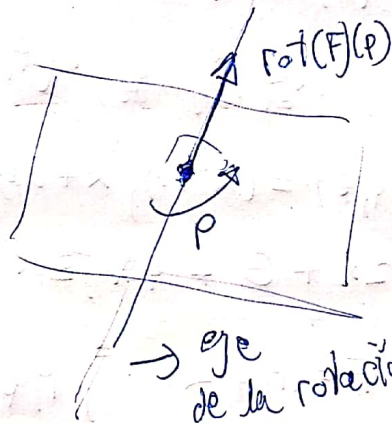 rot(F)(P)
P
→ eje
de la rotación